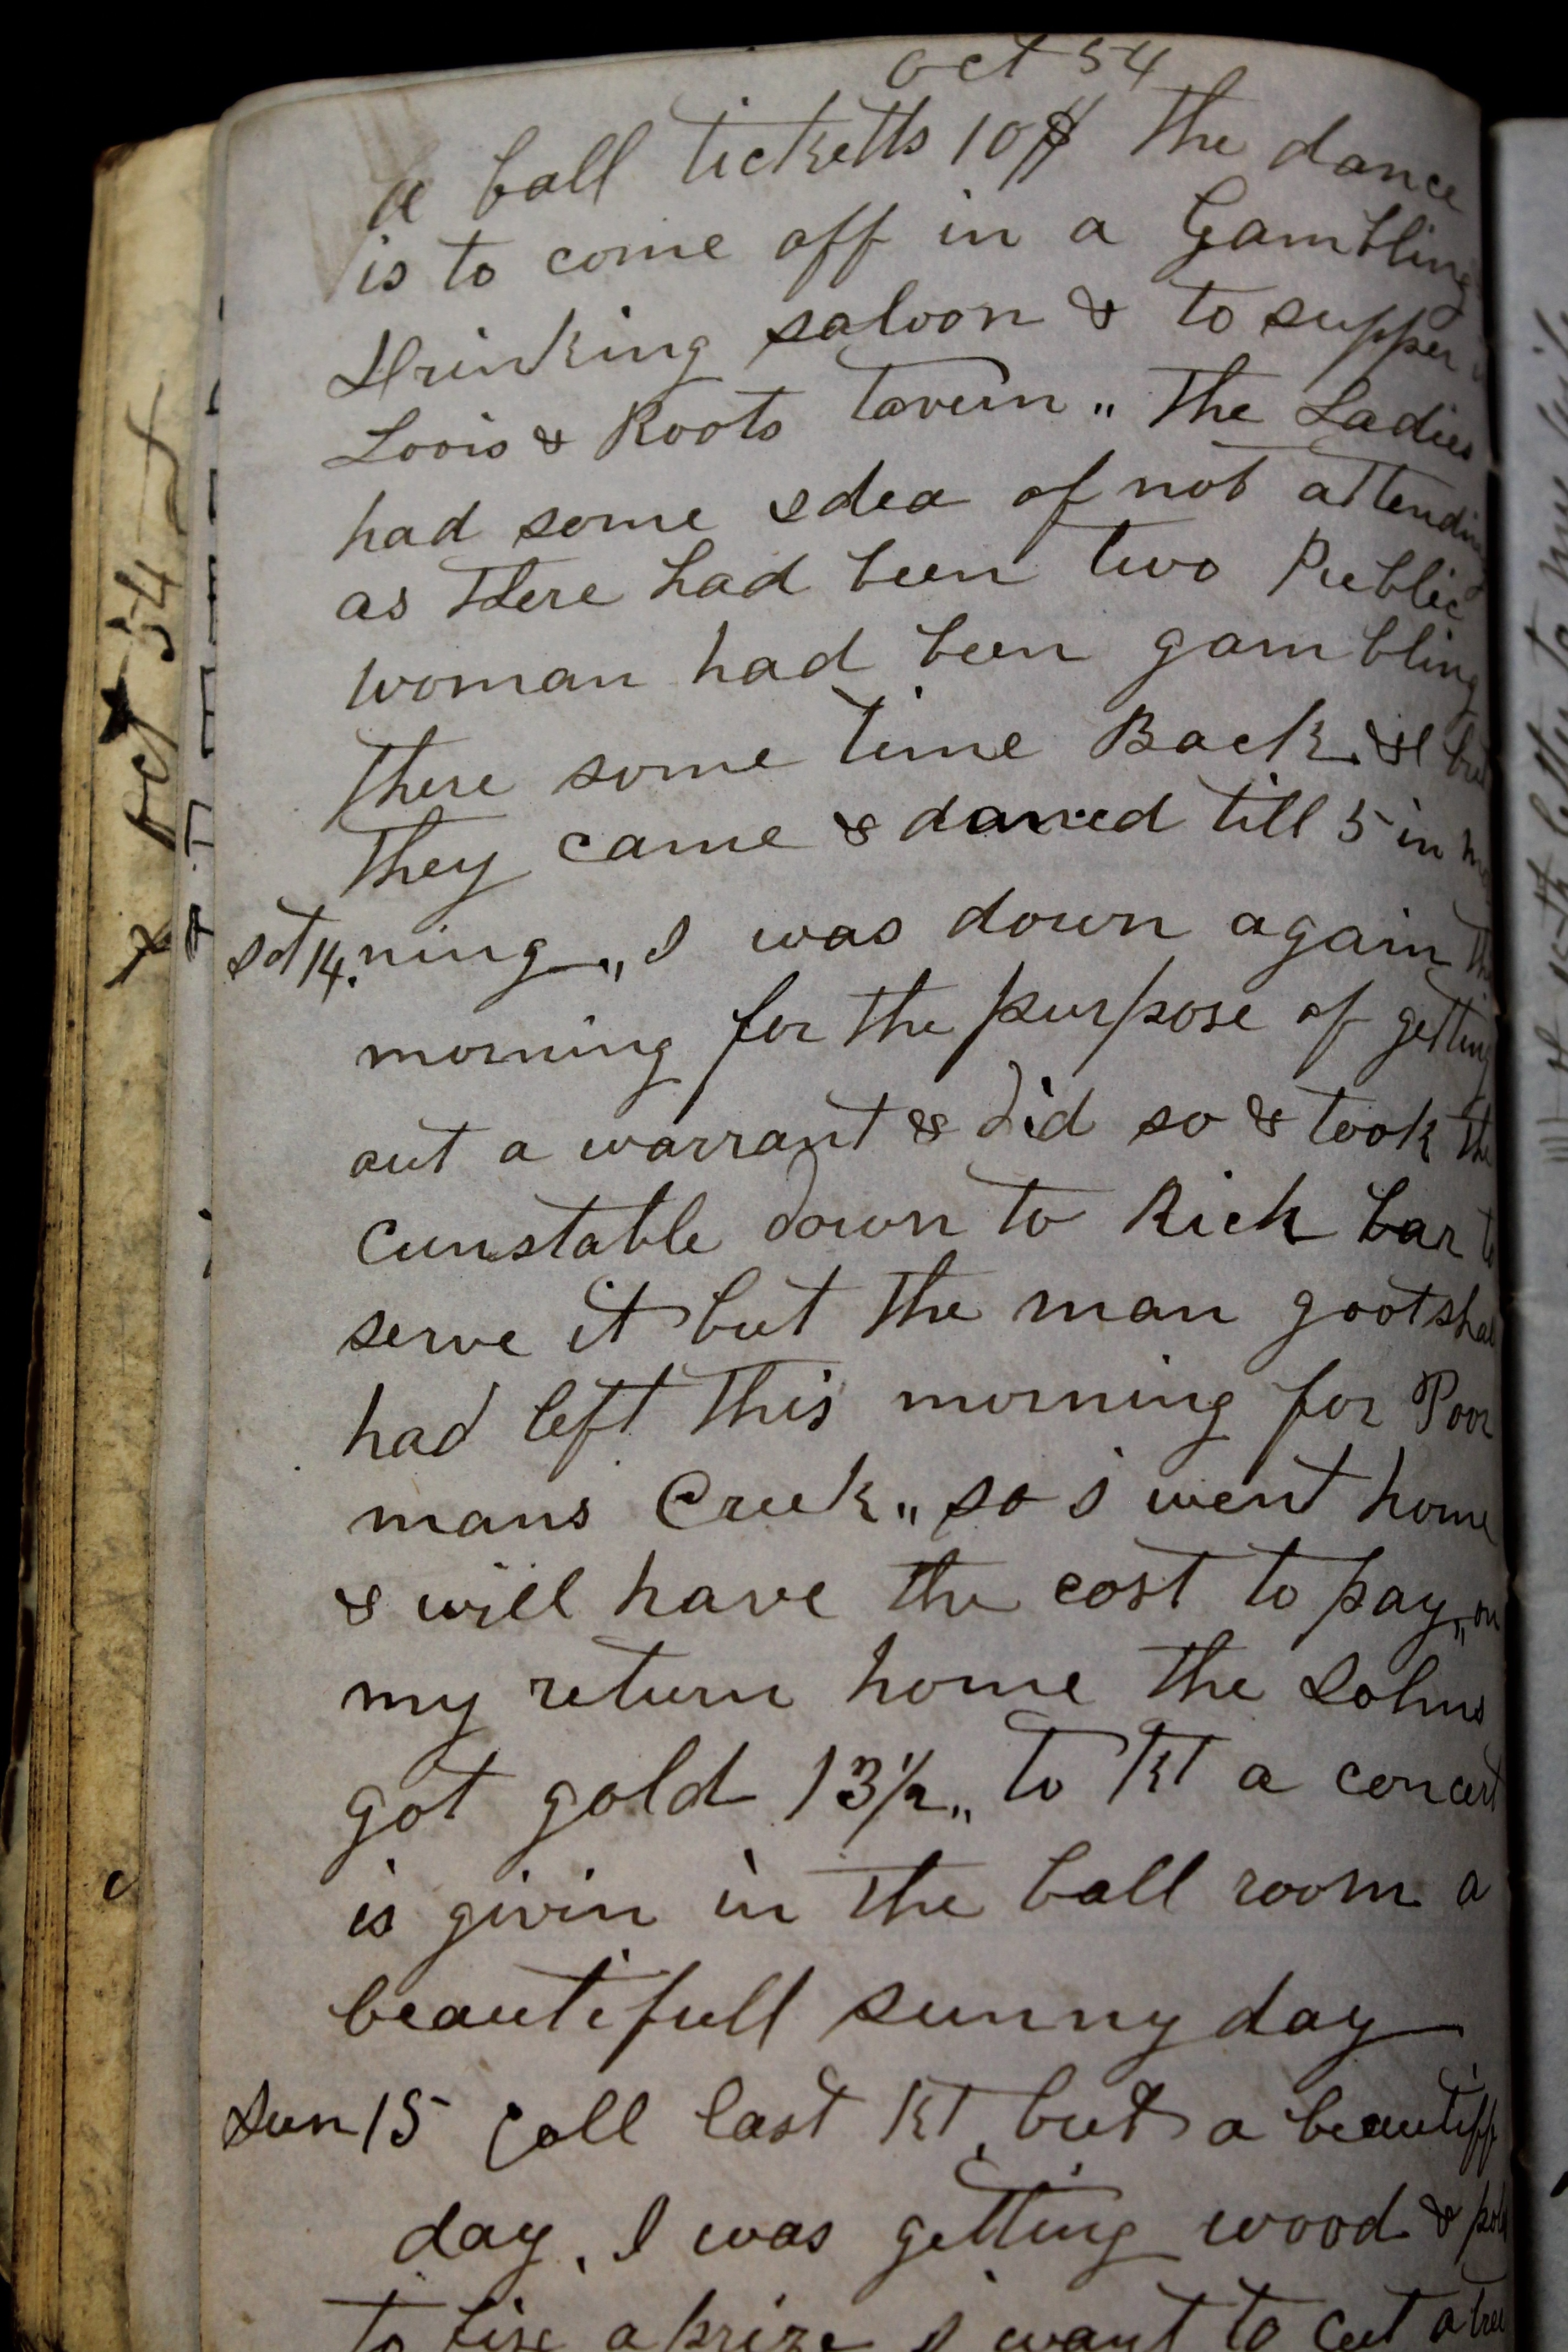 oct 54
a ball ticketts 10$ The dance
is to come off in a Gambling
Drinking saloon & to supper
Loois & Roots tavern „ The Ladies
had some idea of not attending
as There had been two Public
woman had been gambling
There some time Back & but
They came & danced till 5 in mor
sat 14. ning „ I was down again this
morning for the purpose of getting
out a warrant & did so & took the
cunstable down to Rich bar to
serve it but the man
had left This morning for Poor
mans Creek „ so I went home
& will have the cost to pay „ on
my return home the
got gold 13½ „ to Nt a concert
is givin in the ball room a
beautifull sunny day
sun 15 coll last Nt but a beautiff
day. I was getting wood & pole
to fix a prize I want to cut a tree
oct 54